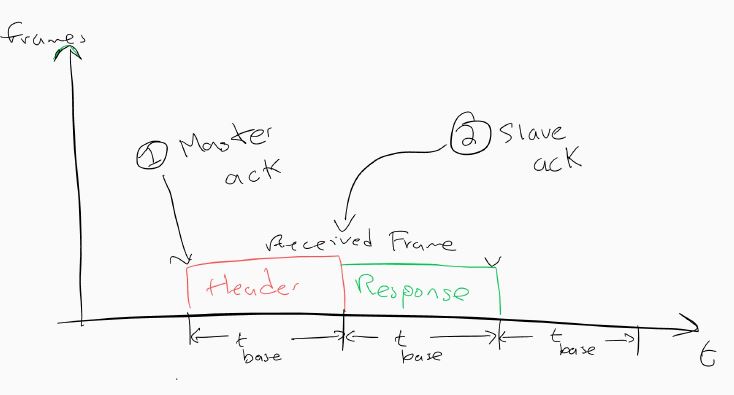 frames
1 Master
ack
2 Slave
ack
Received Frame
Header
Response
t base
t base
t base
t